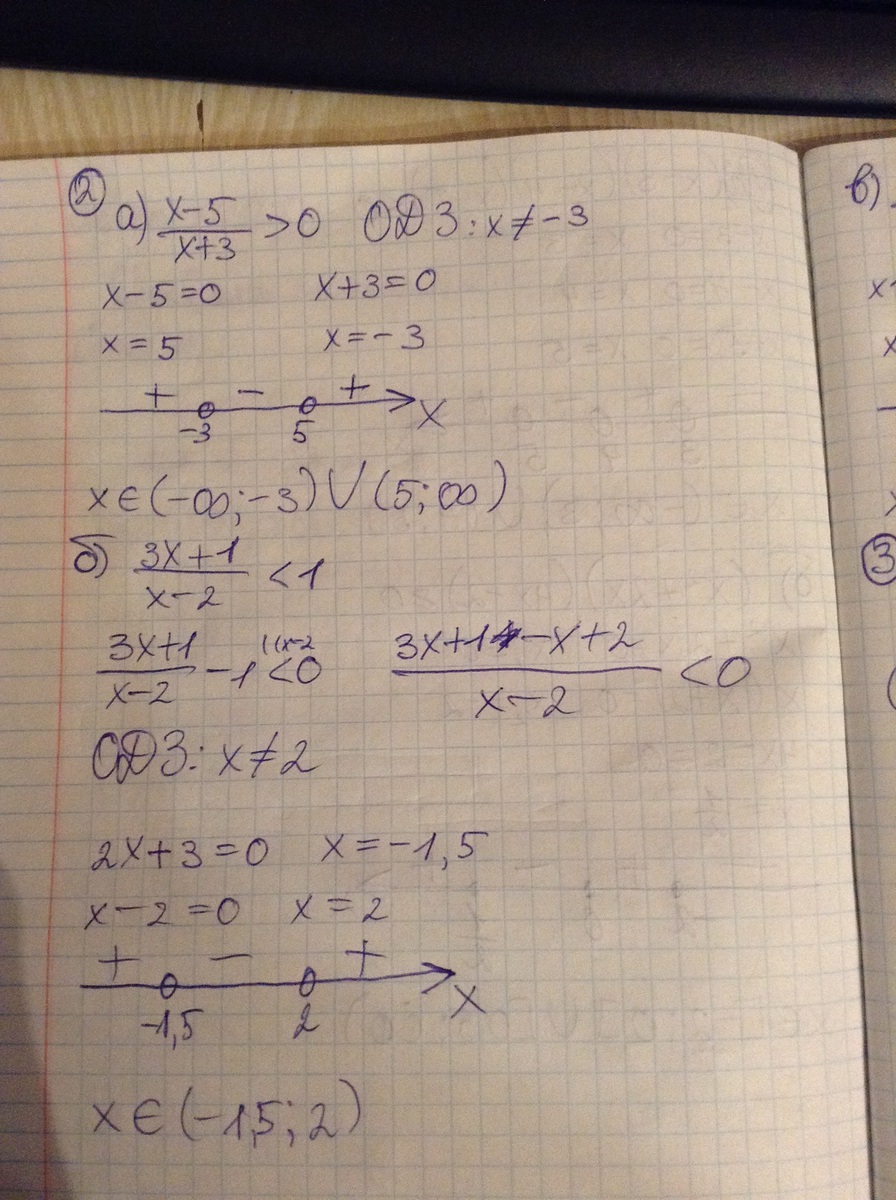 ② а) x-5/x+3 >0 ОДЗ: x≠-3
x-5=0 x+3=0
x=5 x=-3
+ - +
-3 5 x
x∈(-∞;-3)∪(5;∞)
б) 3x+1/x-2 <1
3x+1/x-2 -1 <0 3x+1-x+2/x-2 <0
ОДЗ: x≠2
2x+3=0 x=-1,5
x-2=0 x=2
+ - +
-1,5 2 x
x∈(-1,5;2)
в)
③